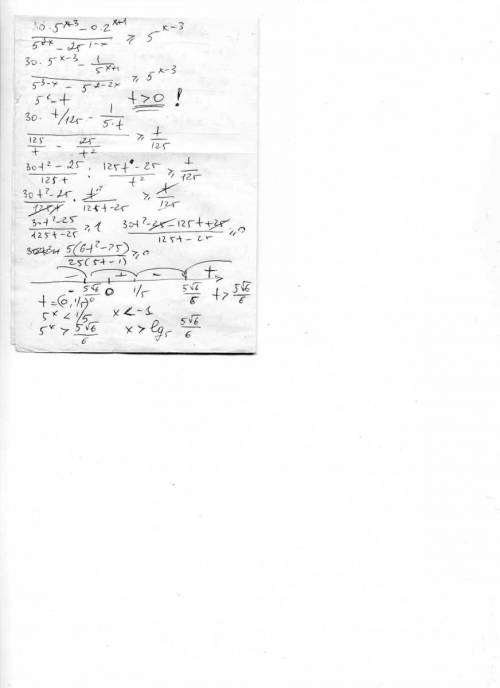 30·5^(x-3) - 0.2^(x+1) / 5^(3-x) - 25^(1-x) ≥ 5^(x-3)
30·5^(x-3) - 1/5^(x+1) / 5^(3-x) - 5^(2-2x) ≥ 5^(x-3)
5^x = t t>0 !
30· t/125 - 1/(5·t) / 125/t - 25/t² ≥ t/125
30t² - 25 / 125t : 125t - 25 / t² ≥ t/125
30t²-25 / 125t · t² / 125t-25 ≥ t/125
30t²-25 / 125t-25 ≥ 1 30t²-25-125t+25 / 125t-25 ≥ 0
5(6t²-25) / 25(5t-1) ≥ 0
- + - +
5√6 0 1/5 5√6/6 t > 5√6/6
t = (0, 1/5)
5^x < 1/5 x < -1
5^x > 5√6/6 x > lg₅ 5√6/6